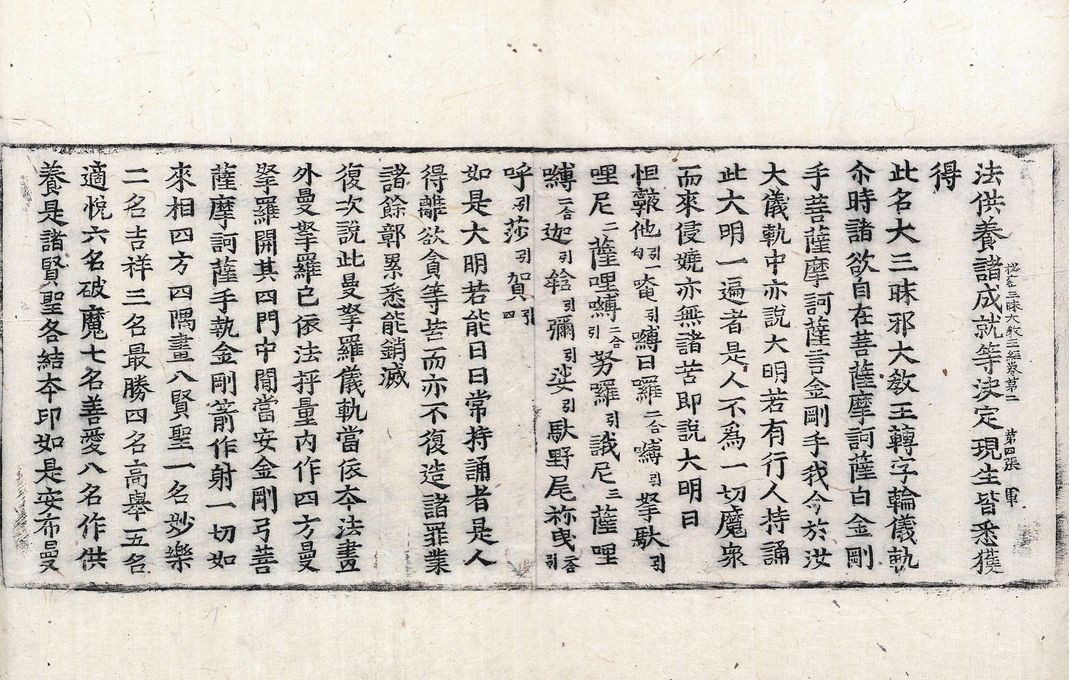 法供養諸成就等決定現生皆悉獲
三昧大教王經卷第二 第四張 軍
得
此名大三昧邪大教王轉字輪儀軌
尒時諸欲自在菩薩摩訶薩白金剛
手菩薩摩訶薩言金剛手我今於汝
大儀軌中亦說大明若有行人持誦
此大明一遍者是人不爲一切魔衆
而來侵嬈亦無諸苦即說大明曰
怛𩕳他引句一唵引嚩日囉二合嚩引拏馱引
哩尼二薩哩嚩二合引努囉引誐尼三薩哩
嚩二合迦引𤚥引彌引娑引馱野尾祢曳二合引
呼引莎引賀引四
如是大明若能日日常持誦者是人
得離欲貪等苦而亦不復造諸罪業
諸餘鄣累悉能銷滅
復次說此曼拏羅儀軌當依夲法畫
外曼拏羅已依法抨量內作四方曼
拏羅開其四門中間當安金剛弓菩
薩摩訶薩手執金剛箭作射一切如
來相四方四隅畫八賢聖一名妙樂
二名吉祥三名最勝四名高舉五名
適悅六名破魔七名善愛八名作供
養是諸賢聖各結夲印如是安布曼